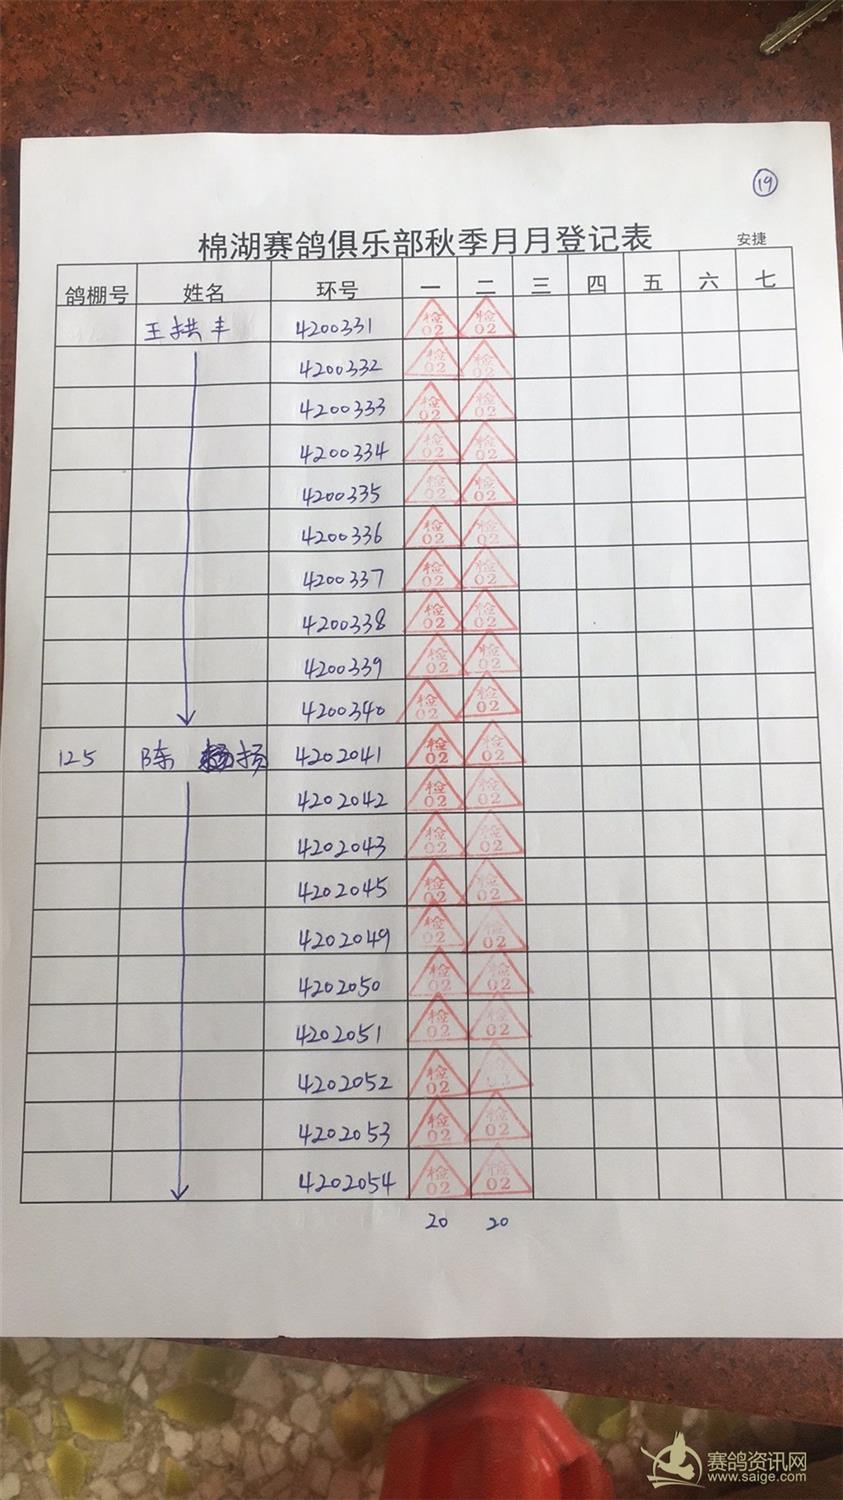 19
棉湖赛鸽俱乐部秋季月月登记表 安捷
鸽棚号 姓名 环号 一 二 三 四 五 六 七
王拱丰 4200331 检02 检02
4200332 检02 检02
4200333 检02 检02
4200334 检02 检02
4200335 检02 检02
4200336 检02 检02
4200337 检02 检02
4200338 检02 检02
4200339 检02 检02
4200340 检02 检02
125 陈 扬 4202041 检02 检02
4202042 检02 检02
4202043 检02 检02
4202045 检02 检02
4202049 检02 检02
4202050 检02 检02
4202051 检02 检02
4202052 检02 检02
4202053 检02 检02
4202054 检02 检02
20 20
赛鸽资讯网
www.saige.com